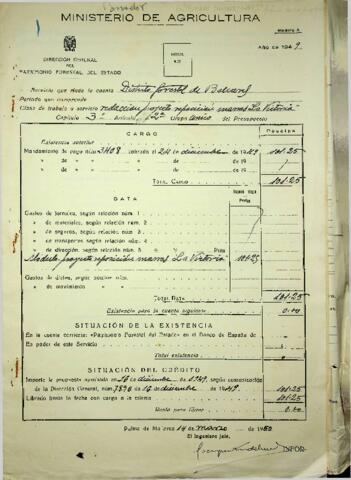 MINISTERIO DE AGRICULTURA
Año de 1949.
DIRECCION GENERAL
DEL
PATRIMONIO FORESTAL DEL ESTADO
Servicio que rinde la cuenta Distrito forestal de Baleares
Período que comprende
Clase de trabajo o servicio redacción proyecto reposición mamas "La Victoria"
Capítulo 3º Artículo 2º Grupo único del Presupuesto
CARGO
Pesetas
Existencia anterior
Mandamiento de pago núm. 3468 cobrado el 24 de diciembre de 1949 101.25
» de » » » de » de 19
» de » » » de » de 19
TOTAL CARGO 101.25
DATA
Gastos de jornales, según relación núm. 1
» de materiales, según relación núm. 2
» de seguros, según relación núm. 3
» de transportes según relación núm. 4
» de dirección, según relación núm. 5
proyecto reposición mamas "La Victoria" 101.25
TOTAL DATA 101.25
Existencia para la cuenta siguiente 0.00
SITUACIÓN DE LA EXISTENCIA
En la cuenta corriente: «Patrimonio Forestal del Estado» en el Banco de España de
En poder de este Servicio
Total existencia
SITUACIÓN DEL CRÉDITO
Importe la propuesta aprobada en 14 de diciembre de 1949, según comunicación
de la Dirección General, 7898 de 14 de diciembre de 1949. 101.25
Librado hasta la fecha con cargo a la misma 101.25
Resta para librar 0.00
Palma de Mallorca 14 de marzo de 1950
El Ingeniero Jefe,